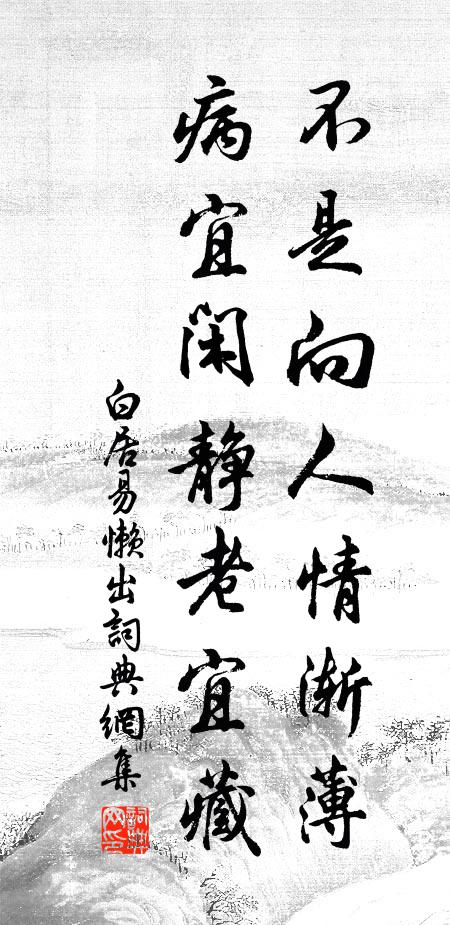 不是向人情漸薄
病宜閑靜老宜藏
白居易懶出詞典網集